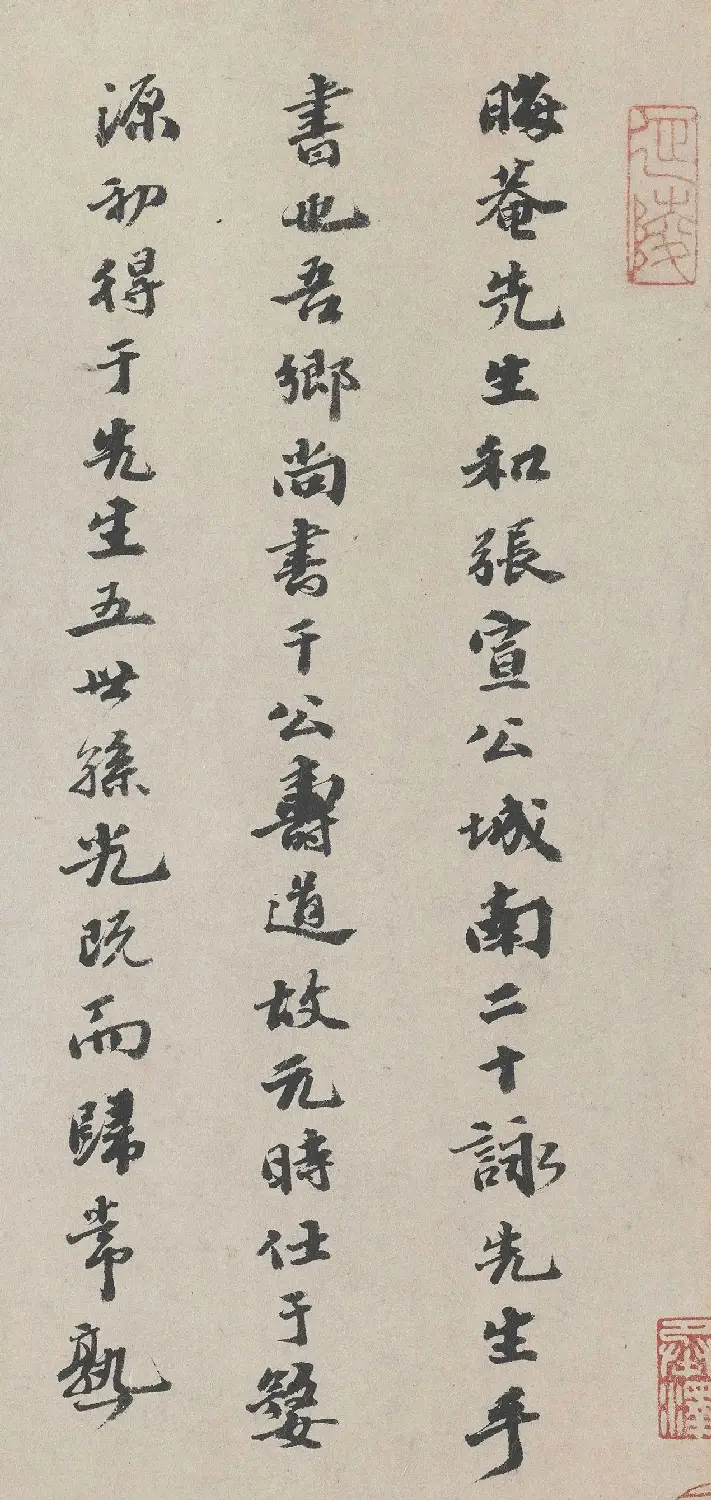 延陵
晦菴先生和張宣公城南二十詠先生手
書也吾鄉尚書干公壽道故元時仕于婺
源初得于先生五世孫光既而歸常熟